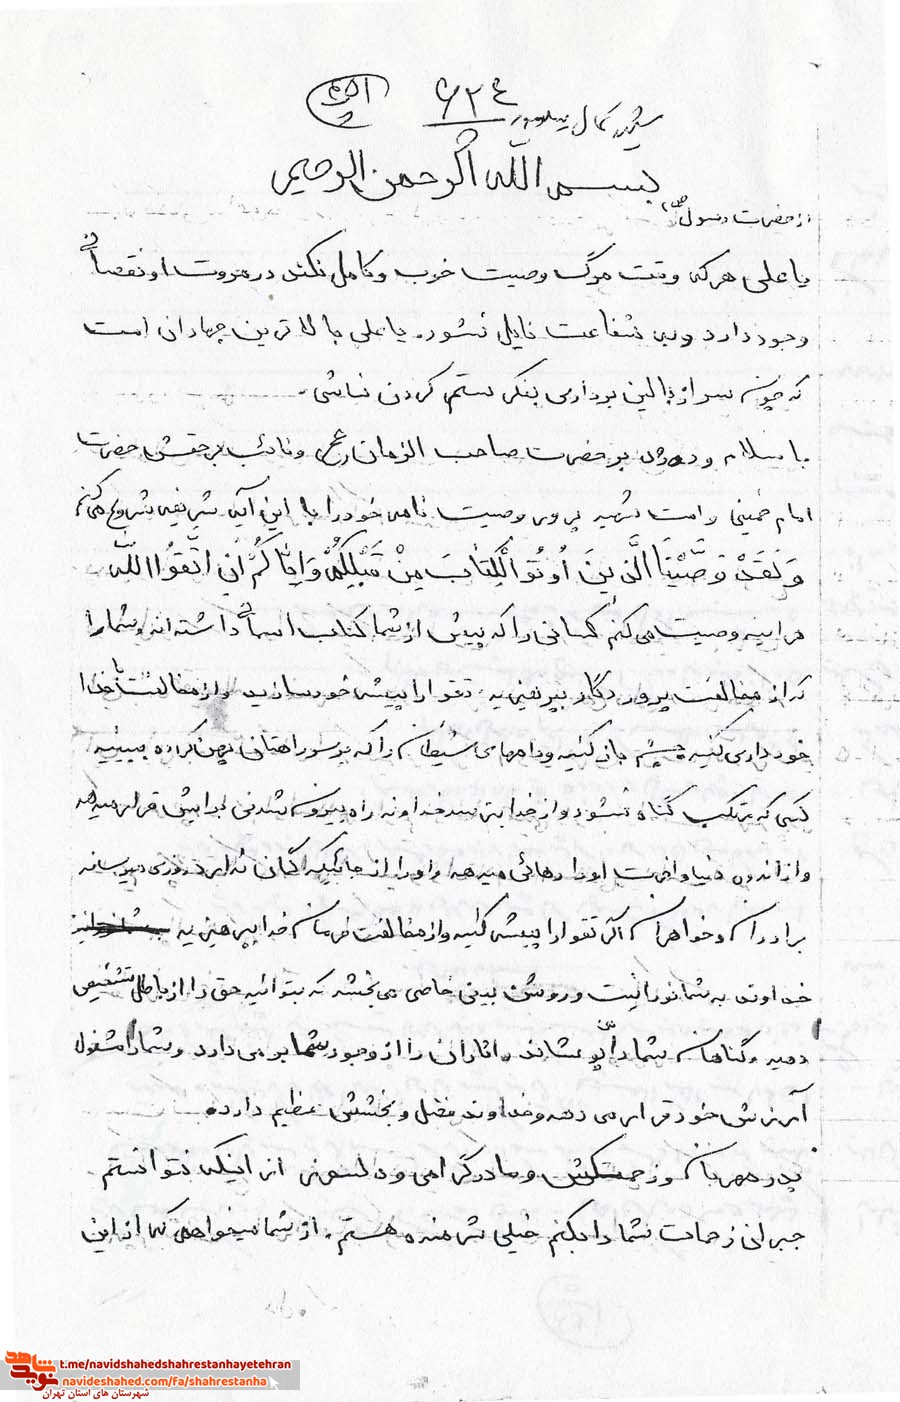 ۶۲۴
شهید کمال
بسم الله الرحمن الرحیم
از حضرت رسول (ص)
یا علی هر که وقت مرگ وصیت خوب و کامل نکند در مروت او نقصان
وجود دارد و به شفاعت نایل نشود. یا علی بالاترین جهاد آن است
که چون سر از بالین برداری بفکر ستم کردن نباشی.
با سلام و درود بر حضرت صاحب الزمان (عج) و نائب بر حقش حضرت
امام خمینی و امت شهید پرور وصیت نامه خود را با این آیه شریفه شروع می کنم
وَلَقَدْ وَصَّیْنَا الَّذینَ أُوتُو الْکِتابَ مِنْ قَبْلِکُمْ وَایاکُمْ اَنِ اتَّقُوا اللّه
هر آیینه وصیت می کنم کسانی را که پیش از شما کتاب آسمانی داشته اند و شما را
که از مخالفت پروردگار بپرهیزید. تقوا را پیشه خود سازید و از مخالفت با خدا
خودداری کنید چشم باز کنید و دامهای شیطان را که بر سر راهتان پهن کرده ببینید
کسی که مرتکب گناه نشود و از خدا بترسد خداوند راه بیرون شدنی برایش قرار میدهد
و از اندوه دنیا و آخرت او را رهائی میدهد و او را از جائیکه گمان ندارد روزی میرساند
برادران و خواهران اگر تقوا را پیشه کنید و از مخالفت فرمان خدا بپرهیزید
خداوند به شما نورانیت و روشن بینی خاصی می بخشد که بتوانید حق را از باطل تشخیص
دهید و گناهان شما را بپوشاند و آثار آن را از وجود شما بر می دارد و شما را مشمول
آمرزش خود قرار می دهد و خداوند فضل و بخشش عظیم دارد.
پدر مهربان و زحمتکش و مادر گرامی و دلسوزم از اینکه نتوانستم
جبرانی زحمات شما را بکنم خیلی شرمنده هستم. از شما میخواهم که از این
نوید شاهد
t.me/navidshahedshahrestanhayetehran
navideshahed.com/fa/shahrestanha
شهرستان های استان تهران